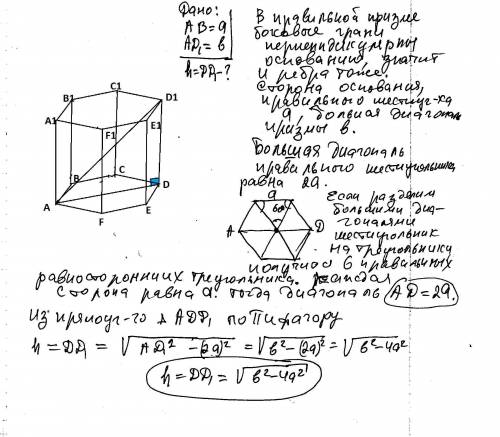 Дано:
AB = a
AD₁ = b
h = DD₁ - ?
В правильной призме
боковые грани
перпендикулярны
основанию, значит
и ребра тоже.
Сторона основания,
правильного шестиуг-ка
a, большая диагональ
призмы b.
Большая диагональ
правильного шестиугольника
равна 2a.
C1
B1
D1
A1
F1
E1
B
C
D
A
F
E
a
60
A
D
Если разделим
большими диа-
гоналями
шестиугольник
на треугольники
получено 6 правильных
равносторонних треугольника.
сторона равна a. тогда диагональ AD = 2a.
Из прямоуг-го Δ ADD₁ по Пифагору
h = DD₁ = √AD₁² - (2a)² = √b² - (2a)² = √b² - 4a²
h = DD₁ = √b² - 4a²